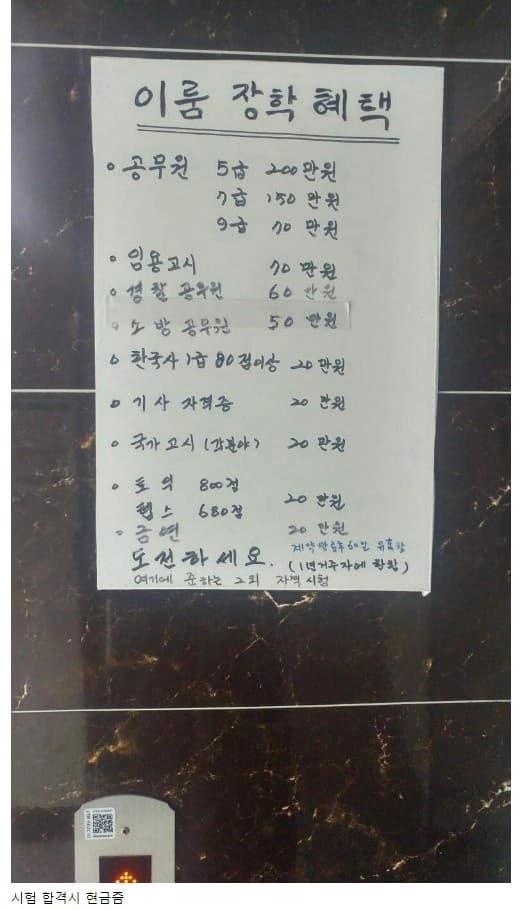 이룸 장학 혜택
○ 공무원 5급 200만원
7급 150만원
9급 70만원
○ 임용고시 70만원
○ 경찰 공무원 60만원
○ 소방 공무원 50만원
○ 한국사 1급 80점이상 20만원
○ 기사 자격증 20만원
○ 국가고시 (각분야) 20만원
○ 토익 800점
텝스 680점 20만원
○ 금연 20만원
도전하세요.
계약만료후 60일 유효함
(1년거주자에 한함)
여기에 준하는 그외 자격시험
시험 합격시 현금줌